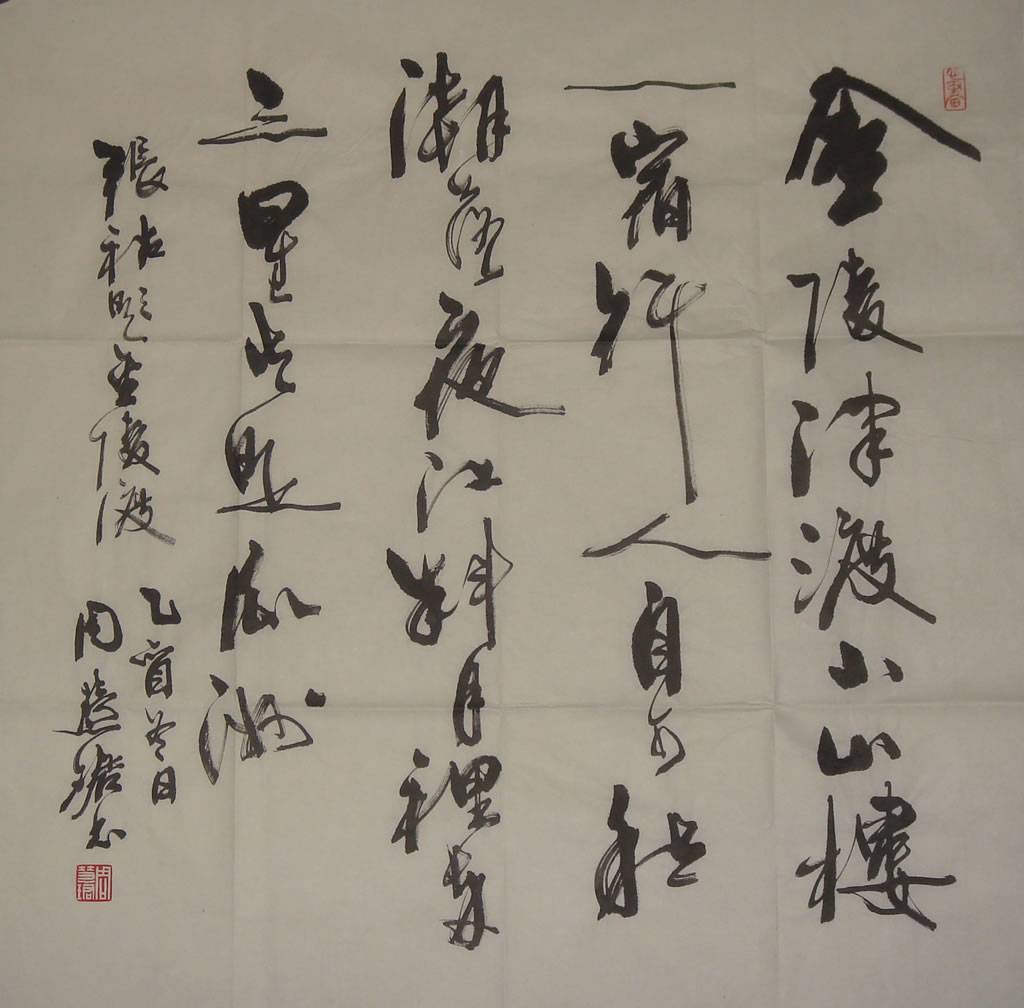 金陵津渡小山樓
一宿行人自可愁
潮落夜江斜月裡兩
三星火是瓜洲
張祜題金陵渡
乙酉冬日
周慧 书